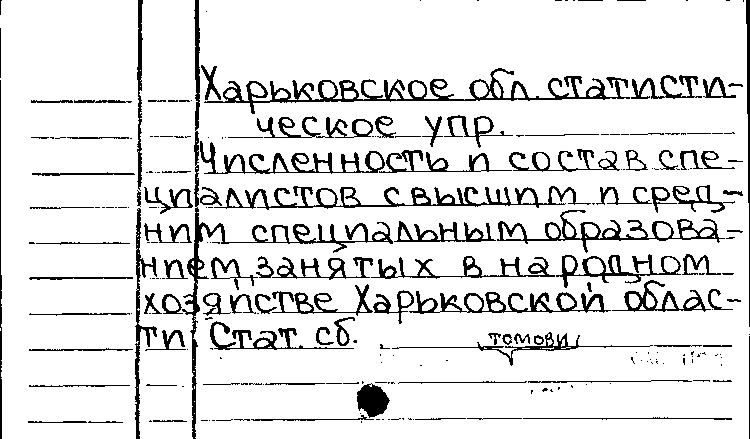 Харьковское обл. статисти-
ческое упр.
Численность и состав спе-
циалистов с высшим и сред-
ним специальным образова-
нием, занятых в народном
хозяйстве Харьковской облас-
ти. Стат. сб.
томови